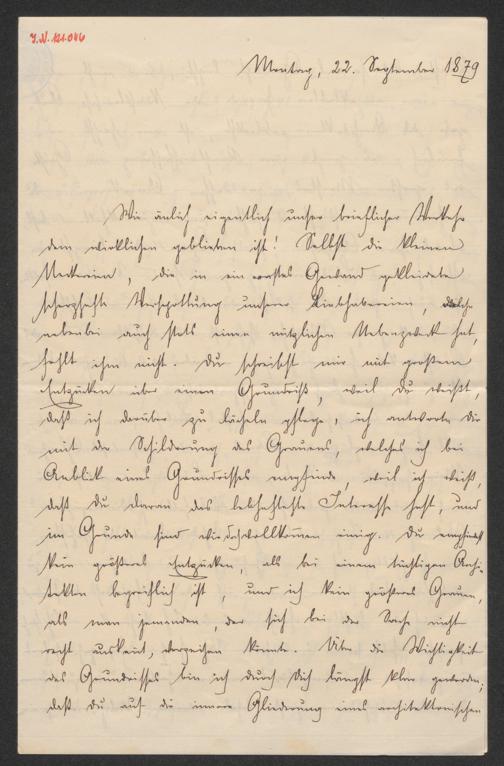 I.N. 121.046
Montag, 22. September 1879
Wie änlich eigentlich unser brieflicher Verkehr
dem wirklichen geblieben ist! Selbst die kleinen
Neckereien, die in ein ernstes Gewand gekleidete
scherzhafte Verspottung unserer Liebhabereien, welche
nebenbei auch stets einen nützlichen Nebenzweck hat,
fehlt ihm nicht. Du schreibst mir mit großem
Entzücken über einen Grundriß, weil Du weißt,
daß ich darüber zu lächeln pflege, ich antworte Dir
mit der Schilderung des Grauens, welches ich bei
Anblick eines Grundrisses empfinde, weil ich weiß,
daß Du daran das lebhafteste Interesse hast, und
im Grunde sind wir doch vollkommen einig. Du empfindest
kein größeres Entzücken, als bei einem tüchtigen Archi-
tekten begreiflich ist, und ich kein größeres Grauen,
als man jemandem, der sich bei der Sache nicht
recht auskent, verzeihen könnte. Über die Wichtigkeit
des Grundrisses bin ich durch Dich längst klar geworden;
daß Du auf die innere Gliederung eines architektonischen